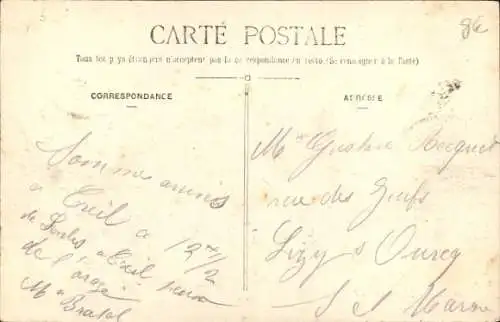 8€
CARTE POSTALE
Tous les pays étrangers n'acceptent pas la correspondance au recto. (Se renseigner à la Poste)
CORRESPONDANCE
ADRESSE
Sommes arrivés
à Creil à
12 h 1/2
de Senlis à Creil
de l'orage
M
Mr Gustave Bocquet
rue des Juifs
Lizy s Ourcq
S et Marne